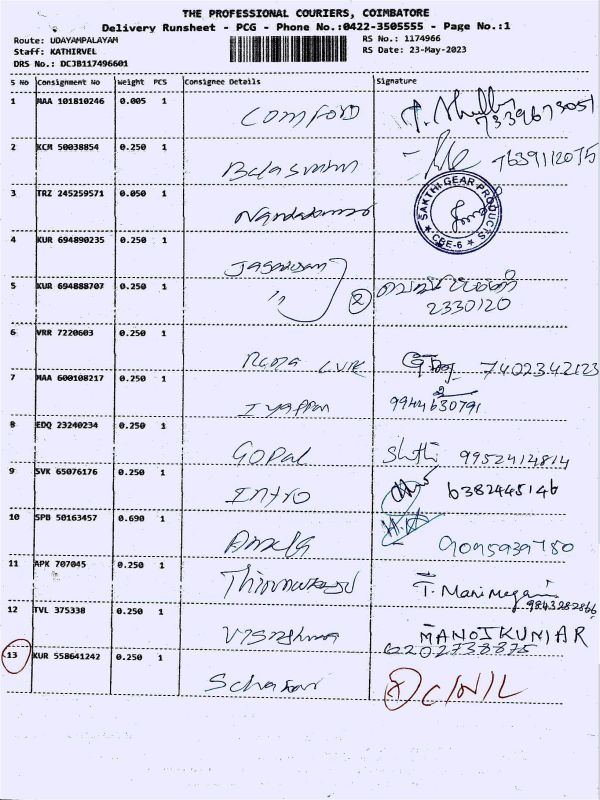 THE PROFESSIONAL COURIERS, COIMBATORE
Delivery Runsheet - PCG - Phone No.:0422-3505555 - Page No.:1
Route: UDAYAMPALAYAM
RS No.: 1174966
Staff: KATHIRVEL
RS Date: 23-May-2023
DRS No.: DCJB117496601
S No Consignment No Weight PCS Consignee Details Signature
1 MAA 101810246 0.005 1
Comford
7339673051
2 KCM 50038854 0.250 1
7639112075
3 TRZ 245259571 0.050 1
SAKTHI GEAR PRODUCTS
CBE-6
4 KUR 694890235 0.250 1
5 KUR 694888707 0.250 1
" 2
2330120
6 VRR 7220603 0.250 1
7402342123
7 MAA 600108217 0.250 1
Iyappan 9944630791
8 EDQ 23240234 0.250 1
Gopal 9952414814
9 SVK 65076176 0.250 1
Intro 6382445146
10 SPB 50163457 0.690 1
9095939780
11 APK 707045 0.250 1
T. Manimegan
9843282866
12 TVL 375338 0.250 1
MANOJKUMAR
6202738875
13 KUR 558641242 0.250 1
C/N/L